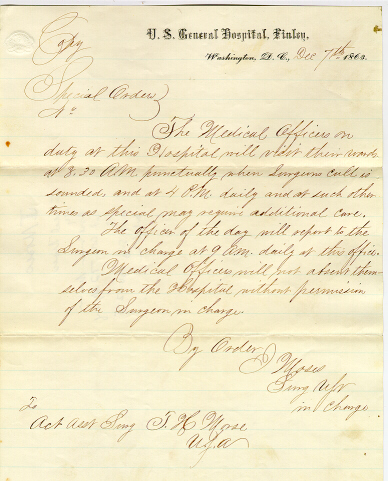 Copy
U. S. General Hospital, Finley,
Washington, D. C., Dec 7th 1863.
Special Orders
No
The Medical Officers on
duty at this Hospital will visit their wards
at 8.30 A.M. punctually when Surgeons call is
sounded, and at 4 P.M. daily and at such other
times as special may require additional care.
The officer of the day will report to the
Surgeon in charge at 9 a.m. daily at this office.
Medical Officers will not absent them-
selves from the Hospital without permission
of the Surgeon in charge.
By Order
Moses
Surg
in charge
To
Act Asst Surg T. H. Morse
U.S.A